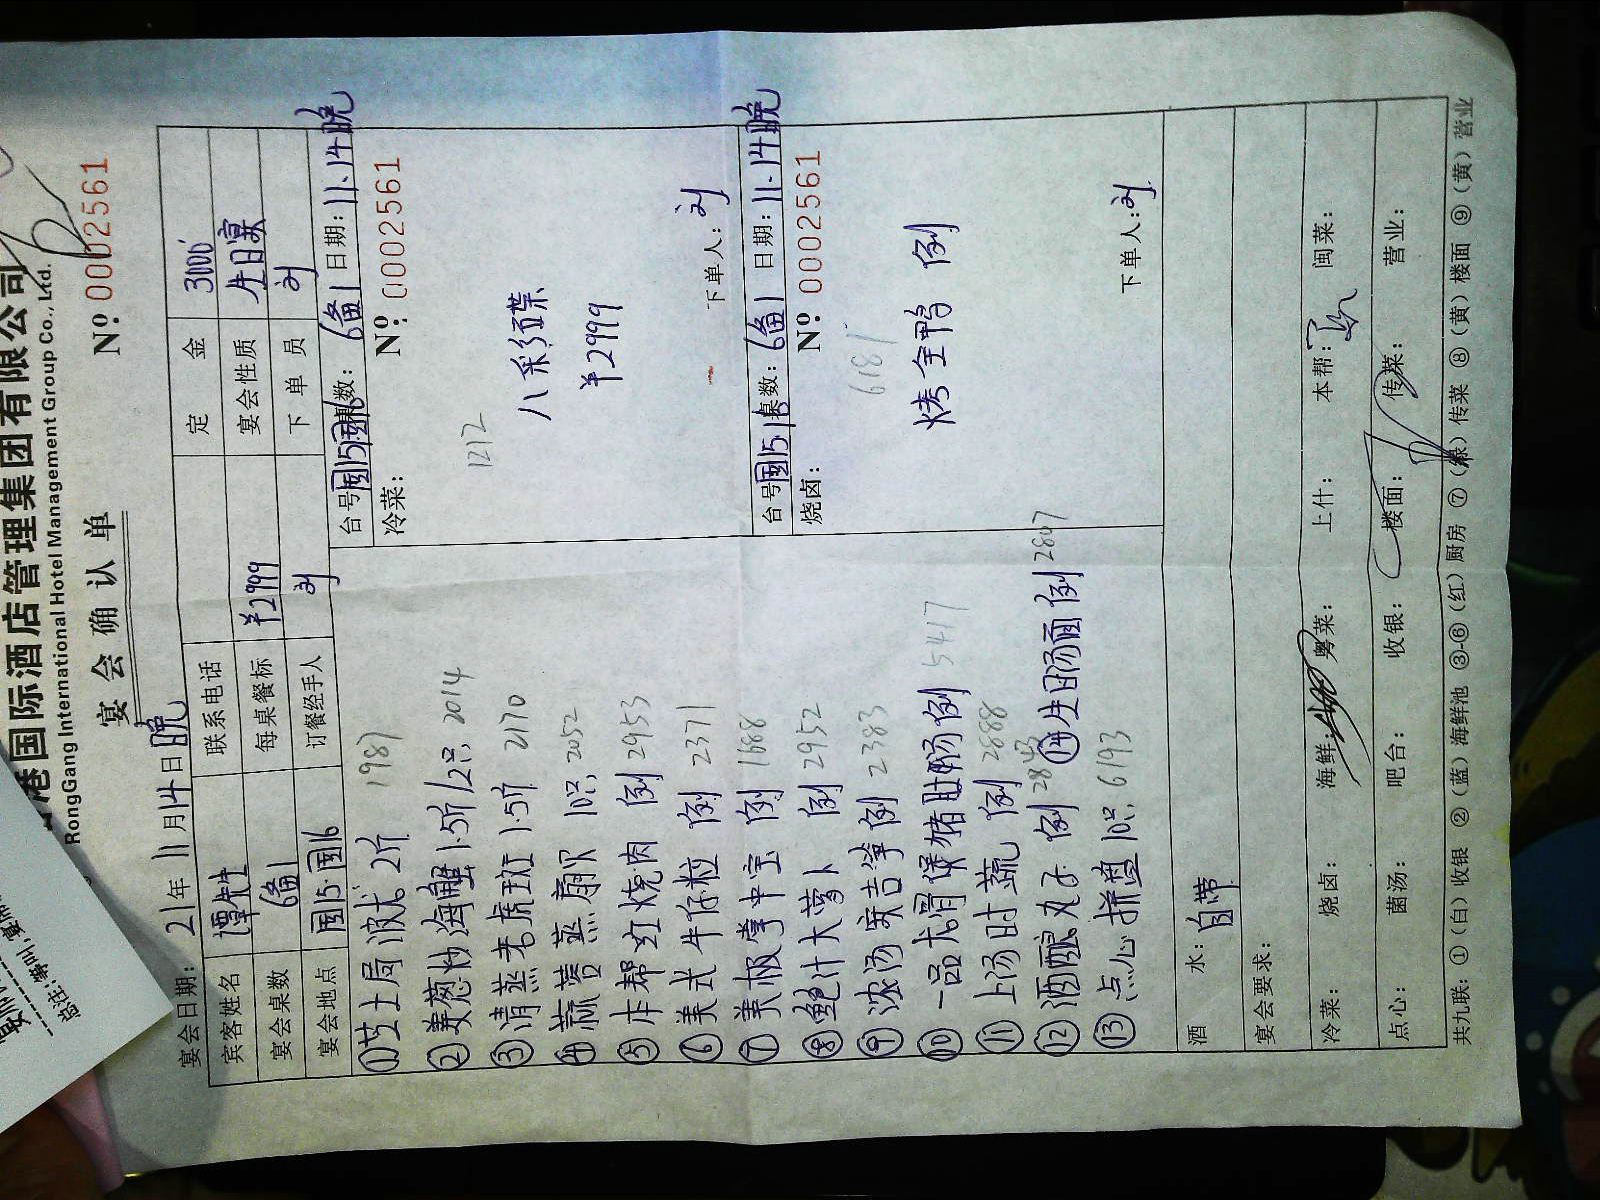 港国际酒店管理集团有限公司
RongGang International Hotel Management Group Co., Ltd.
宴会确认单
№: 0002561
宴会日期: 21年11月14日晚
宾客姓名 谭先生 联系电话 定金 3000
宴会桌数 6备1 每桌餐标 ¥2999 宴会性质 生日宴
宴会地点 国15·国16 订餐经手人 刘 下单员 刘
①芝士局波龙2斤 1987
②姜葱炒海蟹1.5斤/2只 2014
③清蒸老虎斑1.5斤 2170
④蒜蓉蒸扇贝 10只 2052
⑤本帮红烧肉 例 2953
⑥美式牛仔粒 例 2371
⑦美极掌中宝 例 1688
⑧鲍汁大萝卜 例 2952
⑨浓汤安吉笋 例 2383
⑩一品龙骨煲猪肚 例 5417
⑪上汤时蔬 例 2888
⑫酒酿丸子 例
⑬点心拼盘 10只 6193
⑭生日汤面 例
台号 国15 国16 桌数: 6备1 日期: 11.14晚
冷菜: №: 0002561
1212
八彩碟
¥2999
下单人: 刘
台号 国15 桌数: 6备1 日期: 11.14晚
烧卤: №: 0002561
6181
烤全鸭 例
下单人: 刘
酒水: 自带
宴会要求:
冷菜: 烧卤: 海鲜: 粤菜: 上什: 本帮: 闽菜:
点心: 菌汤: 吧台: 收银: 楼面: 传菜: 营业:
共九联: ①(白)收银 ②(蓝)海鲜池 ③-⑥(红)厨房 ⑦(绿)传菜 ⑧(黄)楼面 ⑨(黄)营业